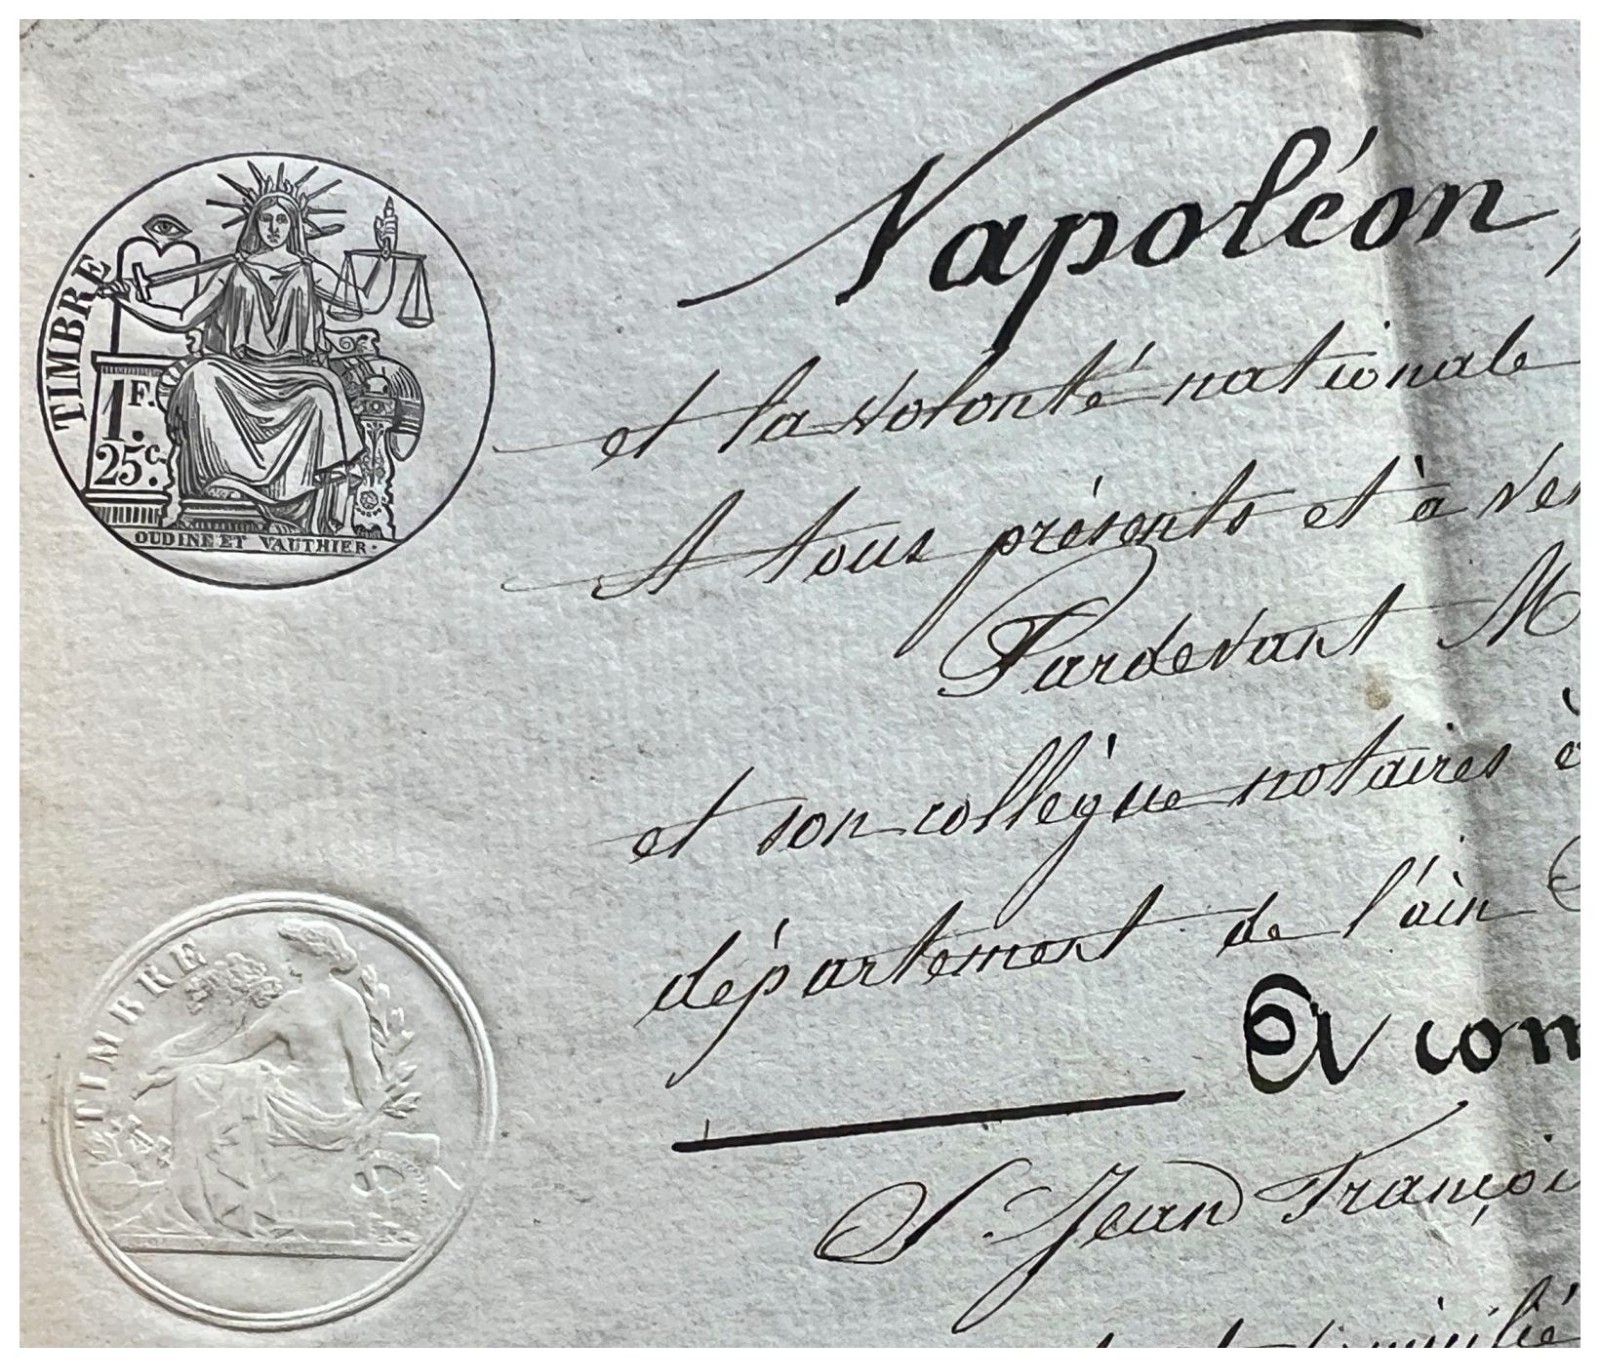 TIMBRE
1 F. 25 c.
OUDINE ET VAUTHIER.
Napoléon,
et la volonté nationale
A tous présents et à
Pardevant M
et son collègue notaires à
département de l'ain
TIMBRE
S. Jean Françoi